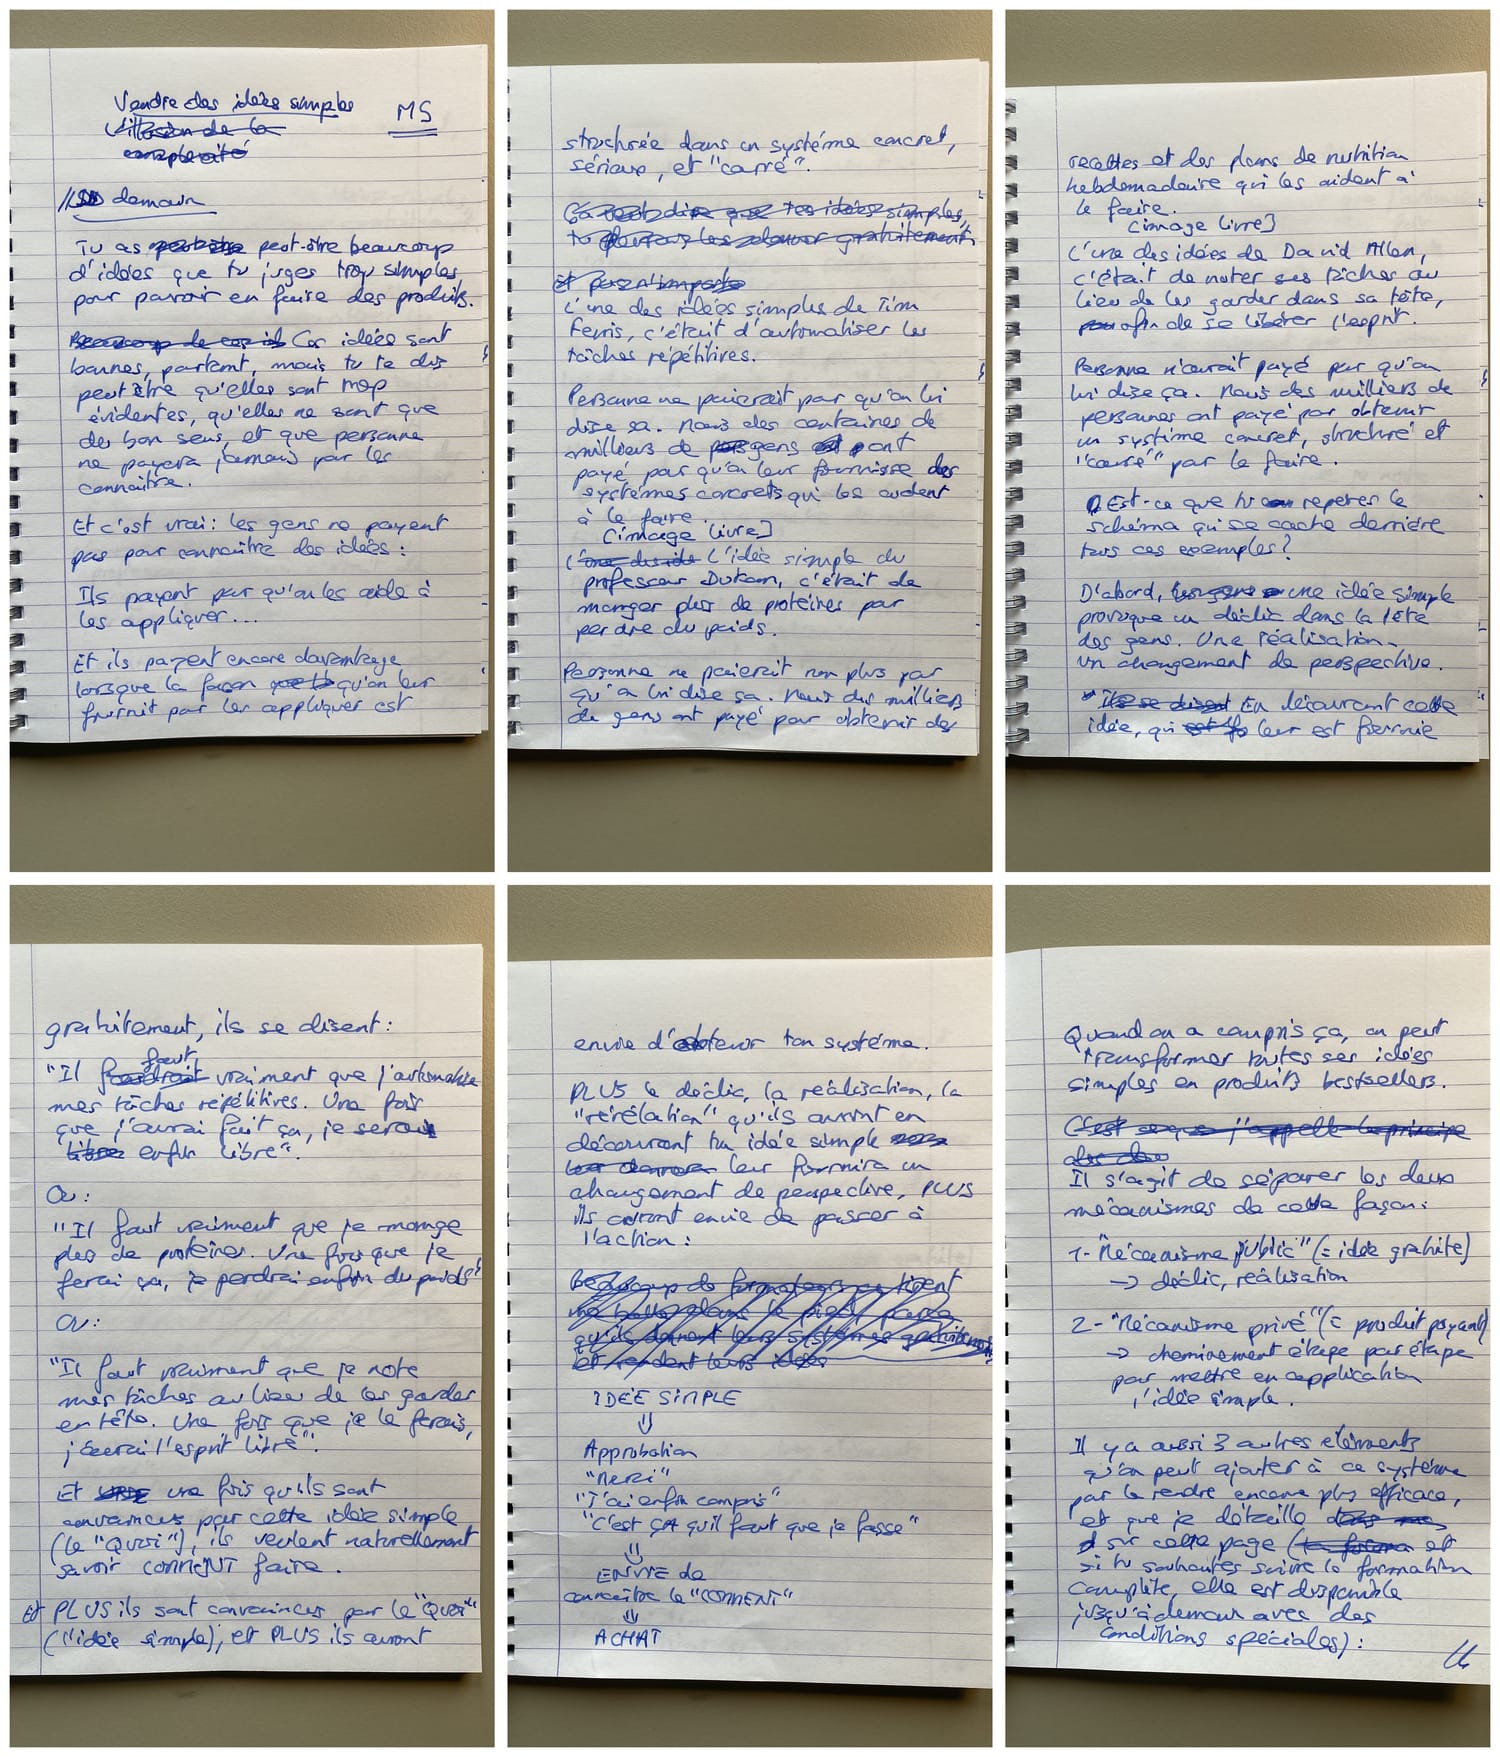 Vendre des idées simples
L'illusion de la
complexité
MS
demain
Tu as peut-être beaucoup
d'idées que tu juges trop simples
pour pouvoir en faire des produits.
Beaucoup de ces id Ces idées sont
bonnes, partent, mais tu te dis
peut être qu'elles sont trop
évidentes, qu'elles ne sont que
du bon sens, et que personne
ne payera jamais par les
connaître.
Et c'est vrai : les gens ne payent
pas pour connaître des idées :
Ils payent pour qu'on les aide à
les appliquer...
Et ils payent encore davantage
lorsque la façon qu'on leur
fournit par les appliquer est
structurée dans un système concret,
sérieux, et "carré".
Ça veut dire que tes idées simples,
tu devrais les donner gratuitement.
Et pas n'importe
L'une des idées simples de Tim
Ferris, c'était d'automatiser les
tâches répétitives.
Personne ne paierait par qu'on lui
dise sa. Mais des centaines de
milliers de gens ont
payé par qu'on leur fournisse des
systèmes concrets qui les aident
à le faire.
[image livre]
L'une des idé L'idée simple du
professeur Dukan, c'était de
manger plus de protéines par
perdre du poids.
Personne ne paierait non plus par
qu'on lui dise sa. Mais des milliers
de gens ont payé pour obtenir des
recettes et des plans de nutrition
hebdomadaire qui les aident à
le faire.
[image livre]
L'une des idées de David Allen,
c'était de noter ses tâches au
lieu de les garder dans sa tête,
pour afin de se libérer l'esprit.
Personne n'aurait payé par qu'on
lui dise ça. Mais des milliers de
personnes ont payé par obtenir
un système concret, structuré et
"carré" par le faire.
Est-ce que tu repères le
schéma qui se cache derrière
tous ces exemples ?
D'abord, les gens une idée simple
provoque un déclic dans la tête
des gens. Une réalisation.
Un changement de perspective.
Ils se disent En découvrant cette
idée, qui est leur est fournie
gratuitement, ils se disent :
faut
"Il faudrait vraiment que j'automatise
mes tâches répétitives. Une fois
que j'aurai fait ça, je serai
libre enfin libre".
Ou :
"Il faut vraiment que je mange
plus de protéines. Une fois que je
ferai ça, je perdrai enfin du poids"
Ou :
"Il faut vraiment que je note
mes tâches au lieu de les garder
en tête. Une fois que je le ferais,
j'aurai l'esprit libre".
Et une fois qu'ils sont
convaincus par cette idée simple
(le "Quoi"), ils veulent naturellement
savoir COMMENT faire.
Et PLUS ils sont convaincus par le "Quoi"
(l'idée simple), et PLUS ils auront
envie d'obtenir ton système.
PLUS le déclic, la réalisation, la
"révélation" qu'ils auront en
découvrant ta idée simple
leur donnera leur fournira un
changement de perspective, PLUS
ils auront envie de passer à
l'action :
Beaucoup de formateurs se tirent
une balle dans le pied parce
qu'ils donnent leurs systèmes gratuitement
et vendent leurs idées
IDÉE SIMPLE
⇓
Approbation
"Merci"
"J'ai enfin compris"
"C'est ÇA qu'il faut que je fasse"
⇓
ENVIE de
connaître le "COMMENT"
⇓
ACHAT
Quand on a compris ça, on peut
transformer toutes ses idées
simples en produits bestsellers.
C'est ce que j'appelle le principe
des deux
Il s'agit de séparer les deux
mécanismes de cette façon :
1- "Mécanisme public" (= idée gratuite)
→ déclic, réalisation
2- "Mécanisme privé" (= produit payant)
→ cheminement étape par étape
par mettre en application
l'idée simple.
Il y a aussi 3 autres éléments
qu'on peut ajouter à ce système
par le rendre encore plus efficace,
et que je détaille dans
sur cette page (la forma et
si tu souhaites suivre la formation
complète, elle est disponible
jusqu'à demain avec des
conditions spéciales) :